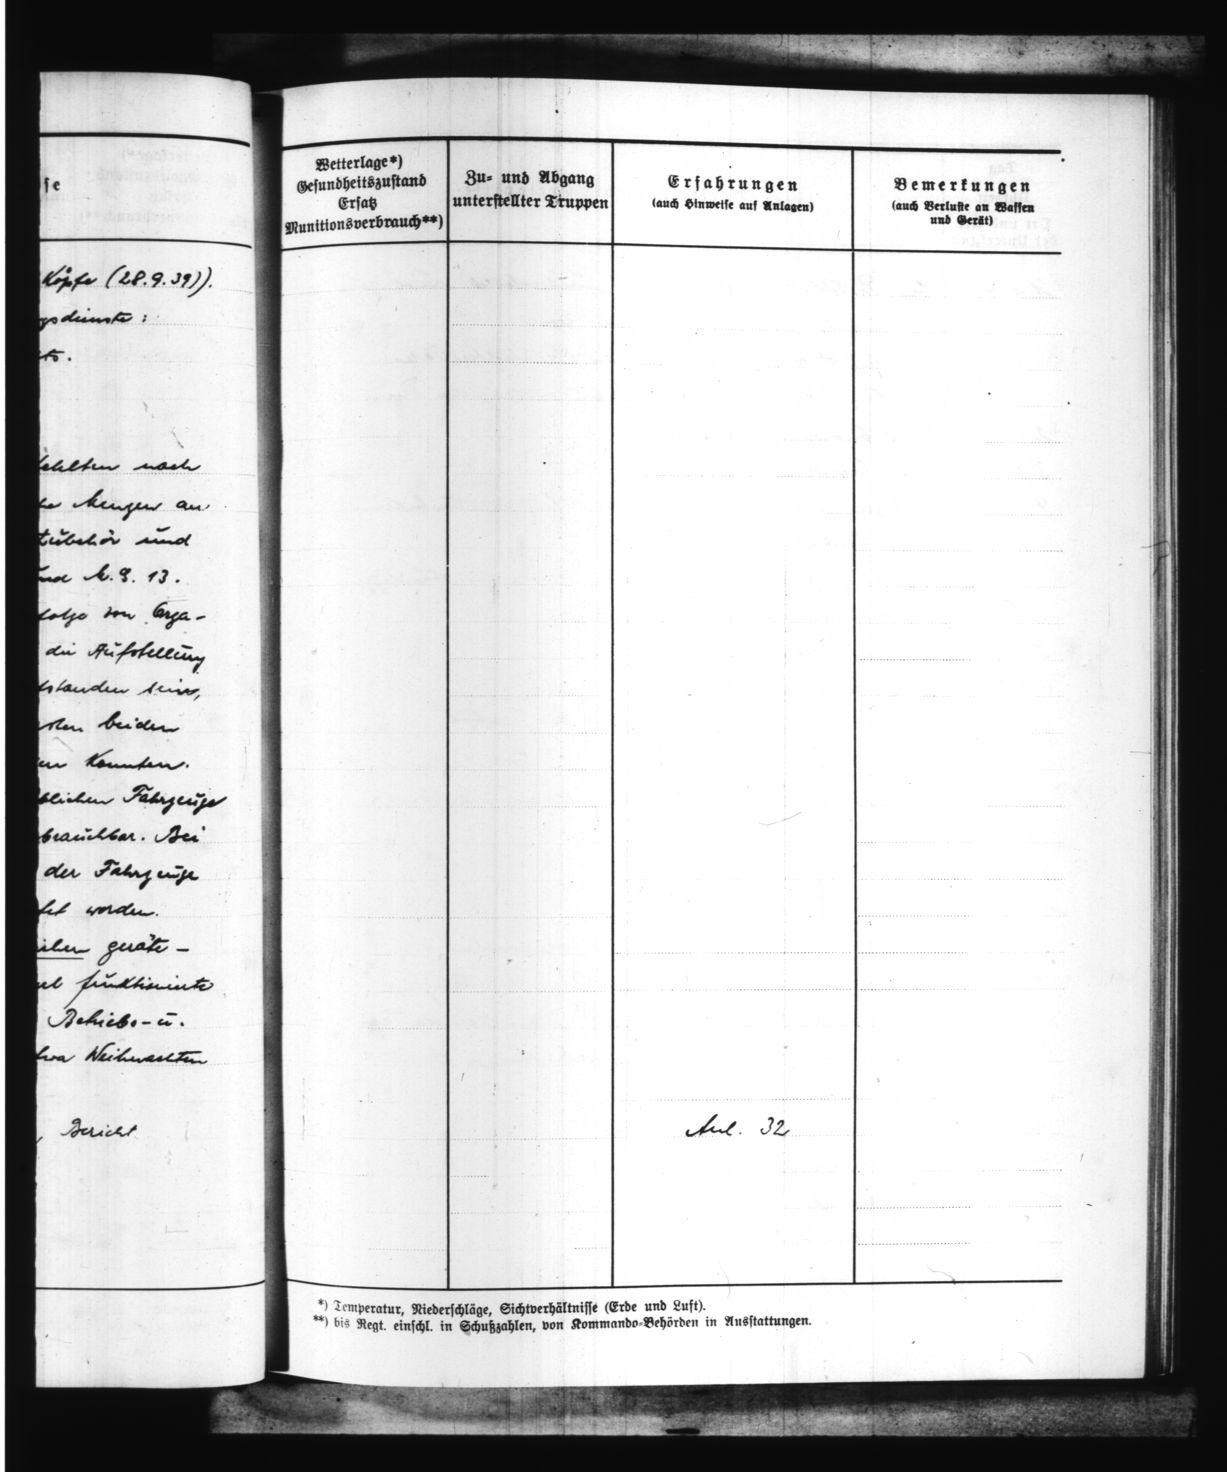 se
Köpfe (28.9.39)).
gsdienste:
to.
fehlten noch
he Mengen an
Zubehör und
und M.G. 13.
folge von Orga-
die Aufstellung
standen sein,
beiden
en konnten.
blichen Fahrzeuge
brauchbar. Bei
der Fahrzeuge
tet worden.
ichen geräte-
el funktionierte
Betriebs-u.
twa Weihnachten
, Bericht
Wetterlage*)
Gesundheitszustand
Ersatz
Munitionsverbrauch**)
Zu- und Abgang
unterstellter Truppen
Erfahrungen
(auch Hinweise auf Anlagen)
Bemerkungen
(auch Verluste an Waffen
und Gerät)
Anl. 32
*) Temperatur, Niederschläge, Sichtverhältnisse (Erde und Luft).
**) bis Regt. einschl. in Schußzahlen, von Kommando-Behörden in Ausstattungen.